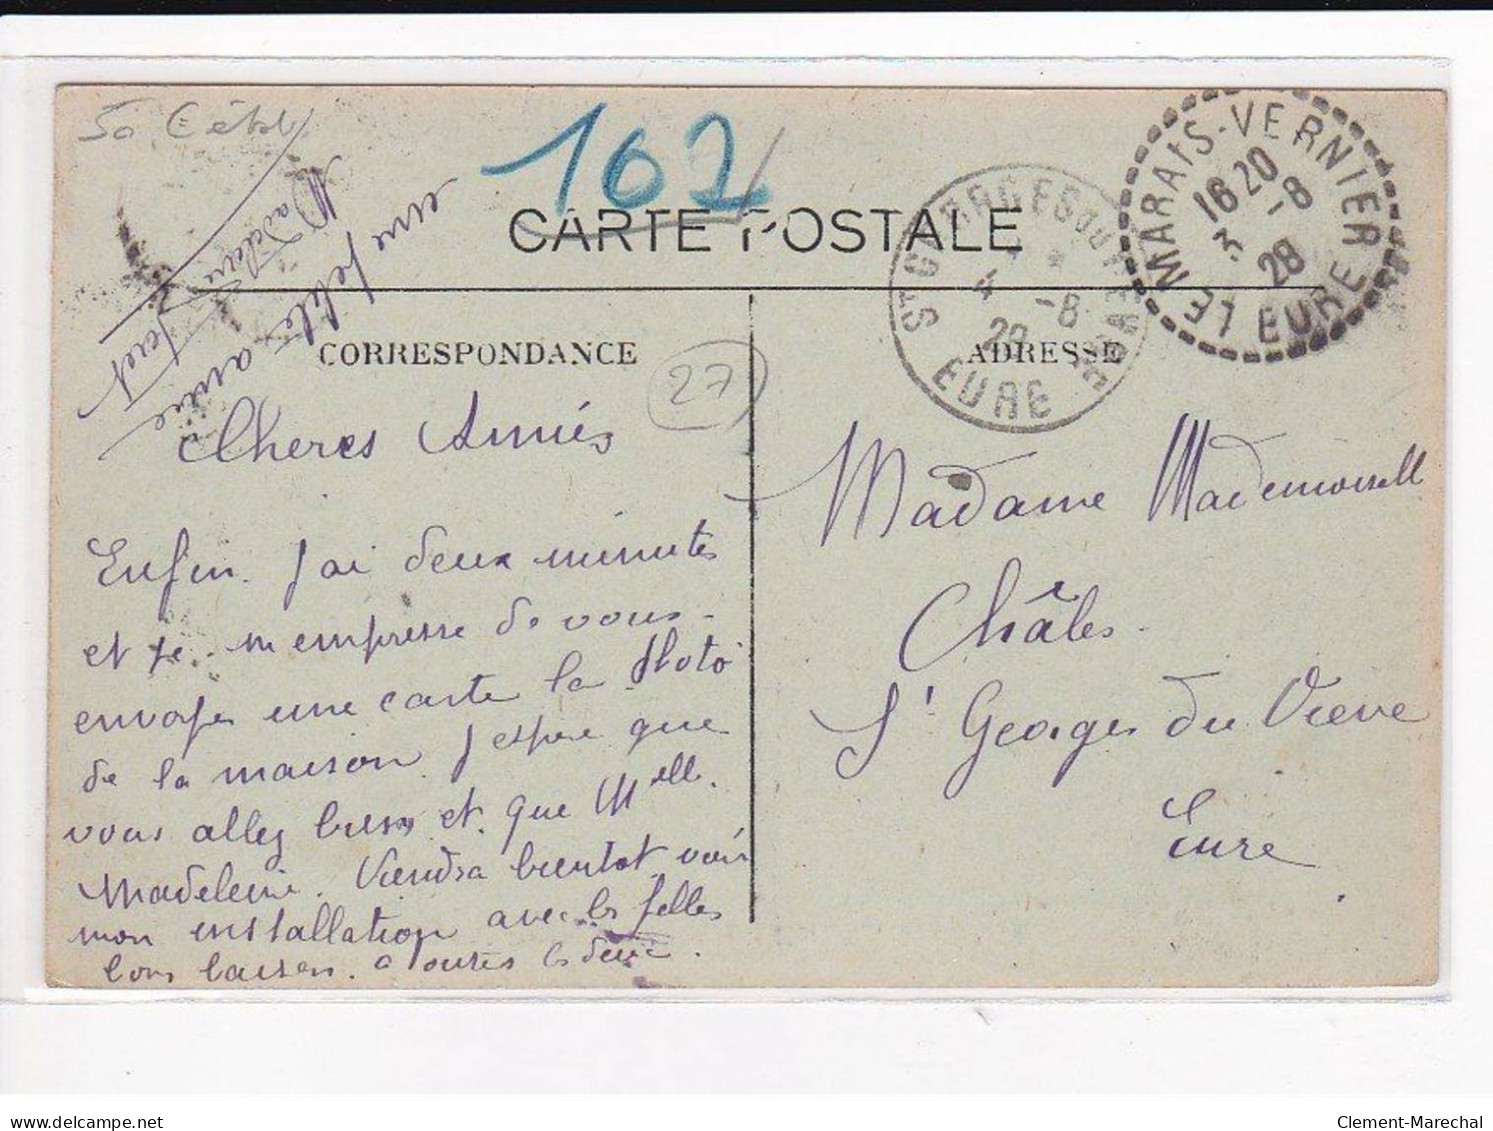 162
CARTE POSTALE
CORRESPONDANCE
ADRESSE
27
LE MARAIS-VERNIER
EURE
16 20
3 -8
28
ST GEORGES DU VIEVRE
4 -8
28
EURE
une petite amie
Madeleine
Cheres Amies
Enfin j'ai deux minutes
et je m empresse de vous
envoyer une carte la Photo
de la maison j espere que
vous allez bien et que Melle
Madeleine Viendra bientot voir
mon installation avec les
bons baisers a toutes les deux.
Madame Mademoiselle
Châles
St Georges du Vievre
Eure
Clement-Marechal
www.delcampe.net